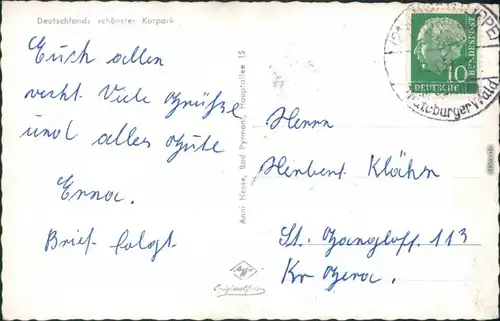 Deutschlands schönster Kurpark
Euch allen
recht Viele Grüße
und alles Gute
Erna.
Brief folgt
Anni Hesse, Bad Pyrmont, Hauptallee 15
Agfa
Originalfoto
Herrn
Herbert Klähn
St. Gangloff 113
Kr Gera.
10
DEUTSCHE
BUNDESPOST
Teutoburger Wald